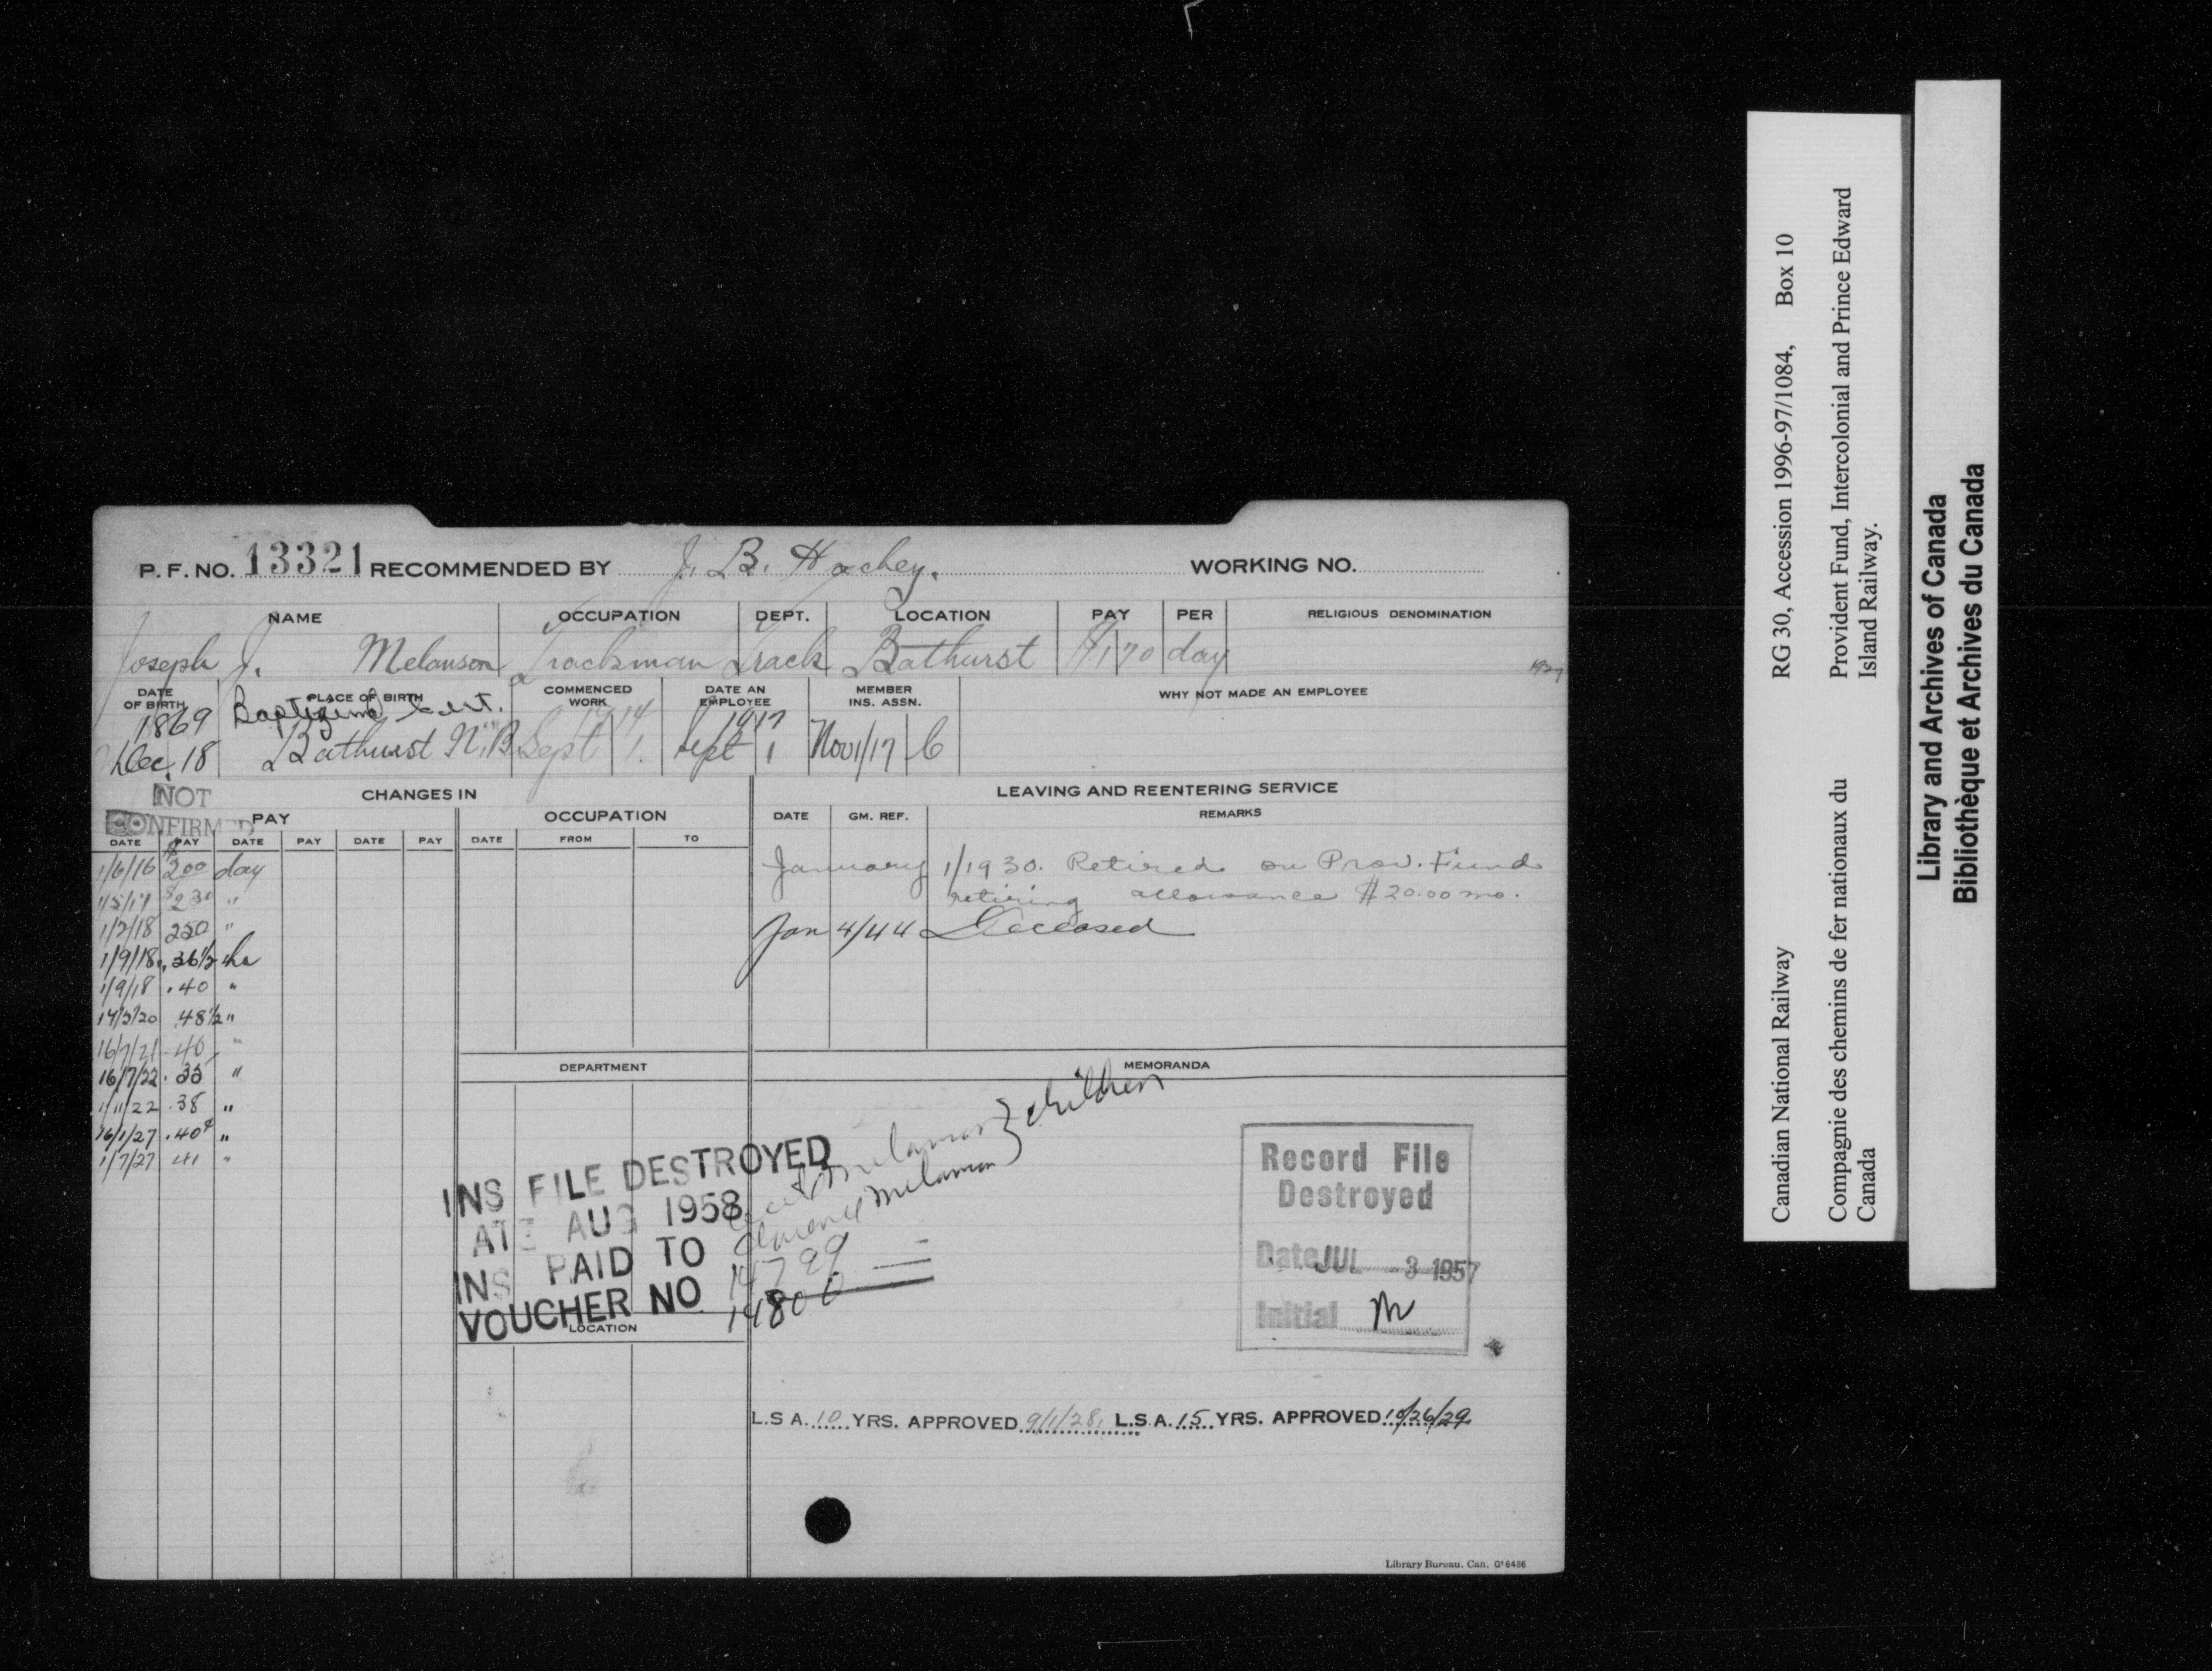 P. F. NO. 13321 RECOMMENDED BY J. B. Hachey. WORKING NO.
NAME OCCUPATION DEPT. LOCATION PAY PER RELIGIOUS DENOMINATION
Joseph J. Melanson Trackman Track Bathurst $1.70 day
1927
DATE OF BIRTH PLACE OF BIRTH COMMENCED WORK DATE AN EMPLOYEE MEMBER INS. ASSN. WHY NOT MADE AN EMPLOYEE
1869 Baptizmal Cert. 1914 1917
Dec. 18 Bathurst N.B Sept 1. Sept 1 Nov 1/17 C
NOT
CONFIRMED
CHANGES IN LEAVING AND REENTERING SERVICE
PAY OCCUPATION DATE GM. REF. REMARKS
DATE PAY DATE PAY DATE PAY DATE FROM TO
1/6/16 $2.00 day
1/5/17 $2.30 "
1/2/18 250 "
1/9/18 .36½ hr
1/9/18 .40 "
.48½ "
16/7/21 .40 "
16/7/22 .35 "
1/11/22 .38 "
16/1/27 .40¢ "
1/7/27 41 "
January 1/1930. Retired on Prov. Fund
retiring allowance $20.00 mo.
Jan 4/44 Deceased
DEPARTMENT MEMORANDA
Melanson } children
Clarence Melanson
INS FILE DESTROYED
ATE AUG 1958
INS PAID TO
14799
VOUCHER NO 14800
LOCATION
Record File
Destroyed
Date JUL 3 1957
Initial M
L.S A. 10 YRS. APPROVED 9/1/28. L.S.A. 15 YRS. APPROVED 10/26/29
Library Bureau. Can. G16486
Canadian National Railway RG 30, Accession 1996-97/1084, Box 10
Compagnie des chemins de fer nationaux du Canada
Provident Fund, Intercolonial and Prince Edward Island Railway.
Library and Archives of Canada
Bibliothèque et Archives du Canada